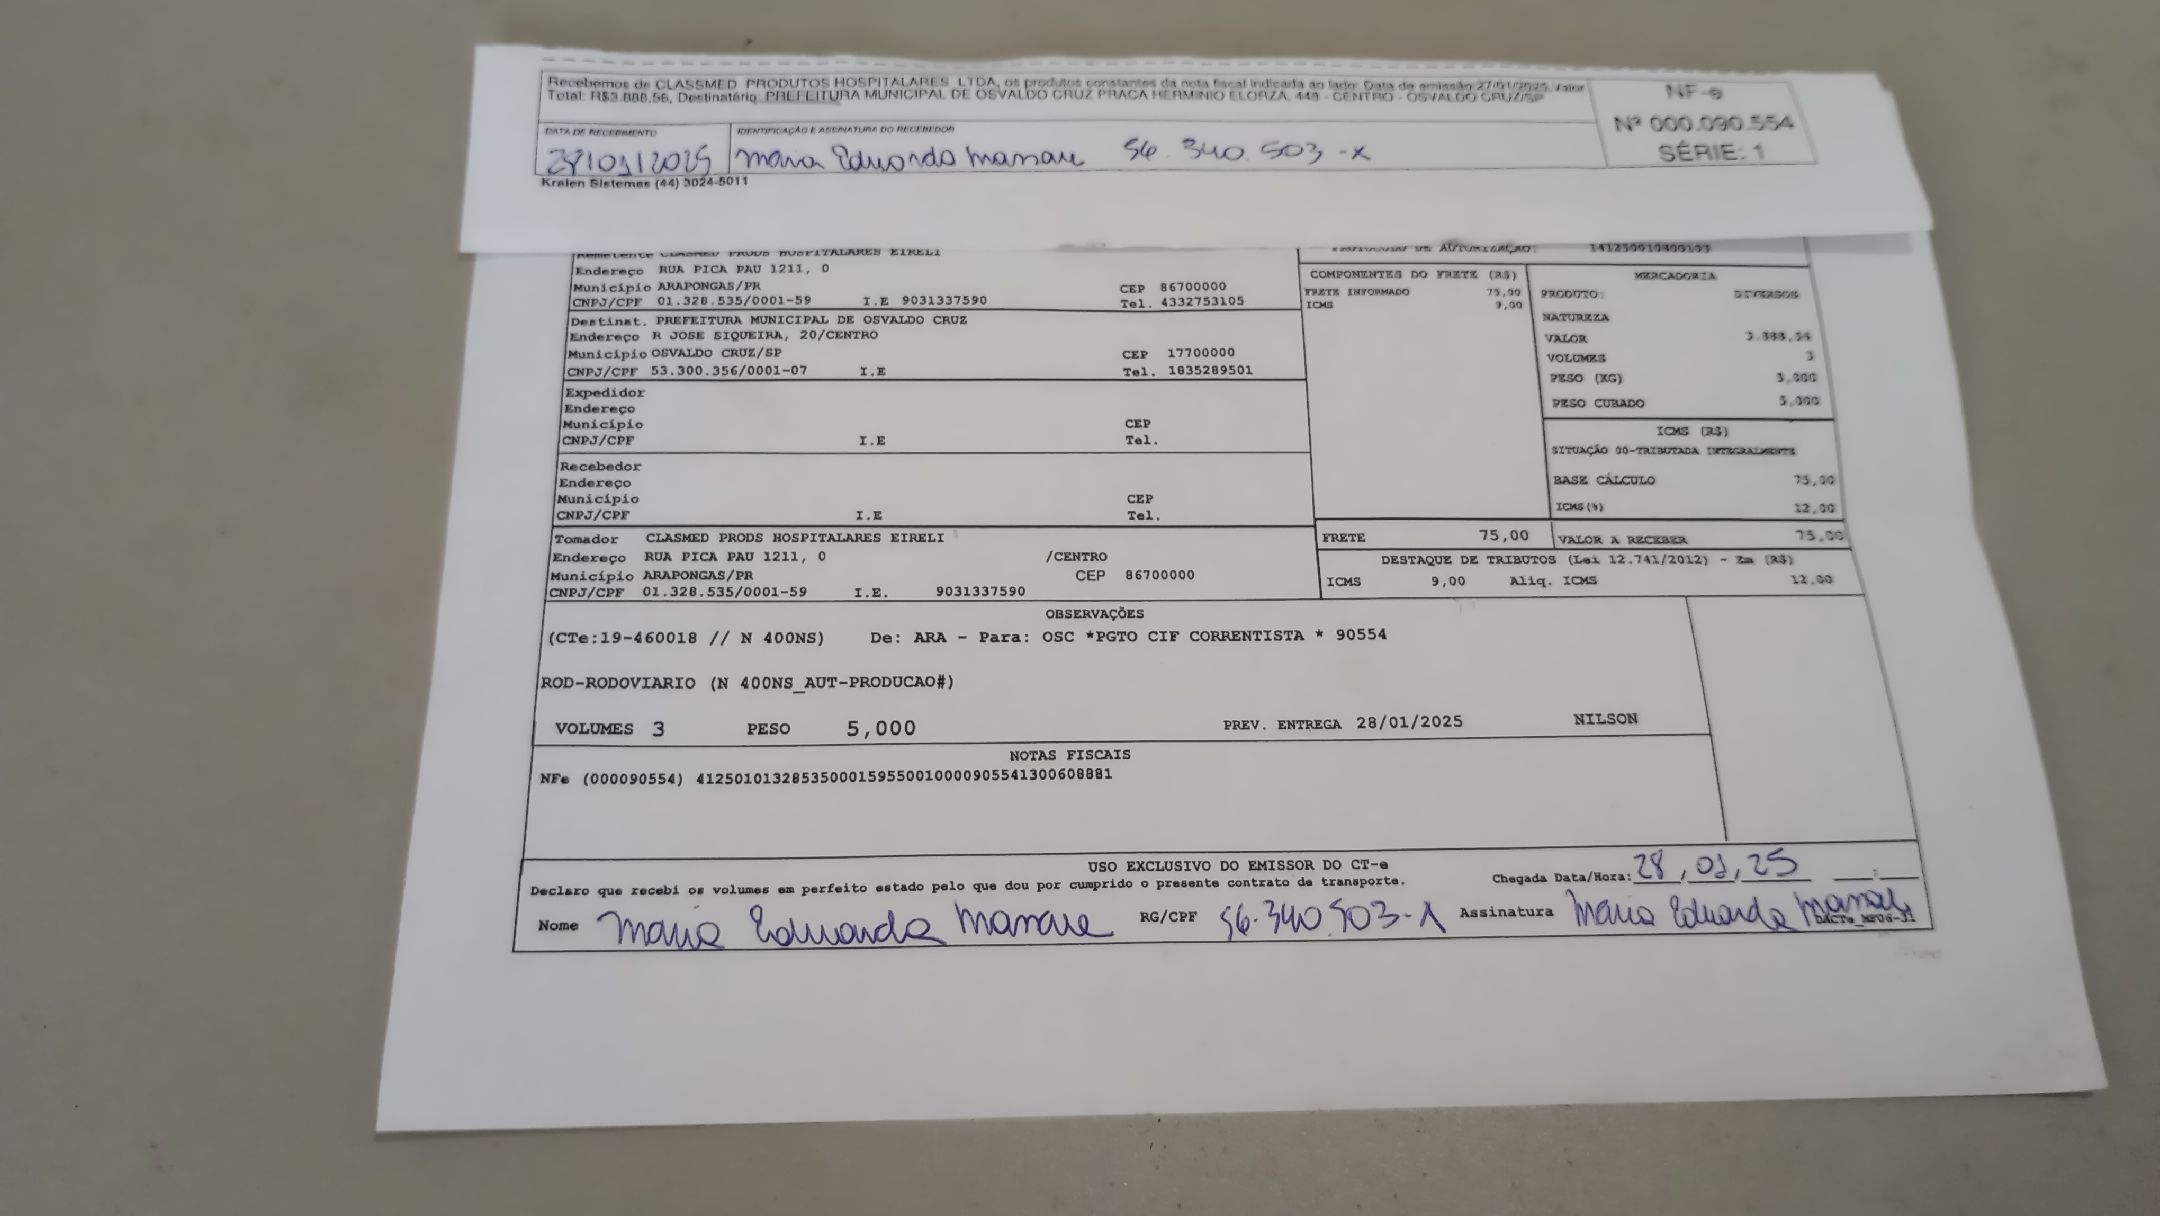 Recebemos de CLASSMED PRODUTOS HOSPITALARES LTDA, os produtos constantes da nota fiscal indicada ao lado. Data de emissão 27/01/2025, Valor
Total: R$3.888,56, Destinatário: PREFEITURA MUNICIPAL DE OSVALDO CRUZ PRACA HERMINIO ELORZA, 449 - CENTRO - OSVALDO CRUZ/SP
NF-e
Nº 000.090.554
SÉRIE: 1
DATA DE RECEBIMENTO
IDENTIFICAÇÃO E ASSINATURA DO RECEBEDOR
28/01/2025 Maria Eduarda 56.340.503-X
Kralen Sistemas (44) 3024-5011
Remetente CLASMED PRODS HOSPITALARES EIRELI
Endereço RUA PICA PAU 1211, 0
Município ARAPONGAS/PR CEP 86700000
CNPJ/CPF 01.328.535/0001-59 I.E 9031337590 Tel. 4332753105
Destinat. PREFEITURA MUNICIPAL DE OSVALDO CRUZ
Endereço R JOSE SIQUEIRA, 20/CENTRO
Município OSVALDO CRUZ/SP CEP 17700000
CNPJ/CPF 53.300.356/0001-07 I.E Tel. 1835289501
Expedidor
Endereço
Município CEP
CNPJ/CPF I.E Tel.
Recebedor
Endereço
Município CEP
CNPJ/CPF I.E Tel.
Tomador CLASMED PRODS HOSPITALARES EIRELI
Endereço RUA PICA PAU 1211, 0 /CENTRO
Município ARAPONGAS/PR CEP 86700000
CNPJ/CPF 01.328.535/0001-59 I.E. 9031337590
DE AUTORIZAÇÃO:
COMPONENTES DO FRETE (R$)
FRETE INFORMADO 75,00
ICMS 9,00
MERCADORIA
PRODUTO: DIVERSOS
NATUREZA
VALOR 3.888,56
VOLUMES 3
PESO (KG) 5,000
PESO CUBADO 5,000
ICMS (R$)
SITUAÇÃO 00-TRIBUTADA INTEGRALMENTE
BASE CÁLCULO 75,00
ICMS(%) 12,00
FRETE 75,00 VALOR A RECEBER 75,00
DESTAQUE DE TRIBUTOS (Lei 12.741/2012) - Em (R$)
ICMS 9,00 Aliq. ICMS 12,00
OBSERVAÇÕES
(CTe:19-460018 // N 400NS) De: ARA - Para: OSC *PGTO CIF CORRENTISTA * 90554
ROD-RODOVIARIO (N 400NS_AUT-PRODUCAO#)
VOLUMES 3 PESO 5,000 PREV. ENTREGA 28/01/2025 NILSON
NOTAS FISCAIS
NFe (000090554) 41250101328535000159550010000905541300608881
USO EXCLUSIVO DO EMISSOR DO CT-e
Declaro que recebi os volumes em perfeito estado pelo que dou por cumprido o presente contrato de transporte.
Chegada Data/Hora: 28,01,25 __:__
Nome Maria Eduarda RG/CPF 56.340.503-X Assinatura Maria Eduarda